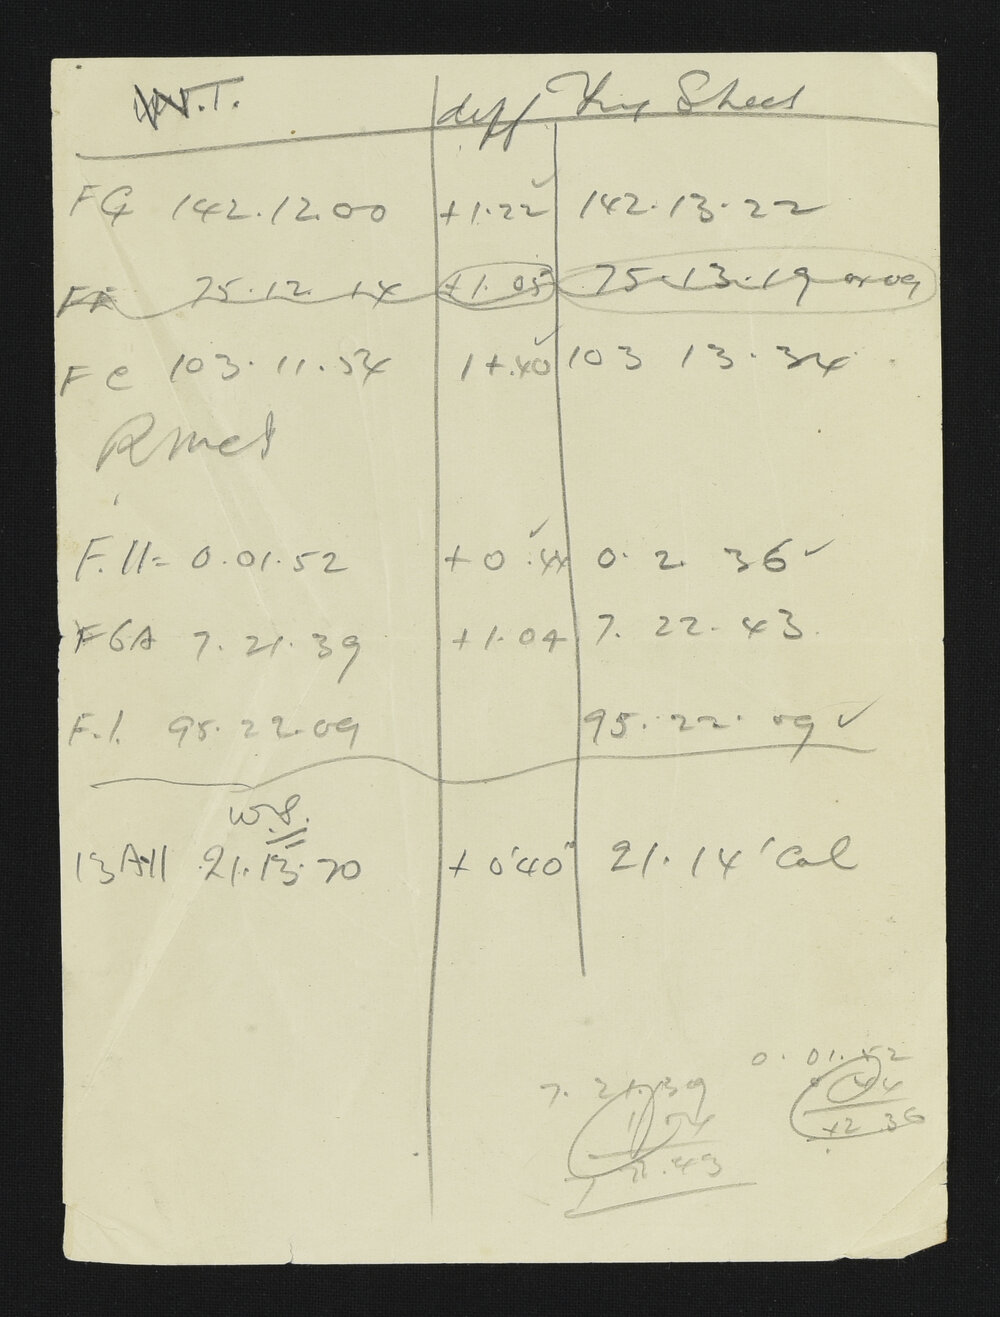 W.T. diff Sheet
FG 142.12.00 +1.22 ✓ 142.13.22
FF 75.12.14 +1.05 75.13.19 or 09
FC 103.11.54 1+.40 ✓ 103 13.34
F.11= 0.01.52 +0.44 ✓ 0.2.36 ✓
F6A 7.21.39 +1.04 7.22.43
F.1. 95.22.09 95.22.09 ✓
W.S.
13 A11 21.13.20 +0'40" 21.14' Cal
0.01.52
44
+2 36
7.21.39
1 04
7 22.43